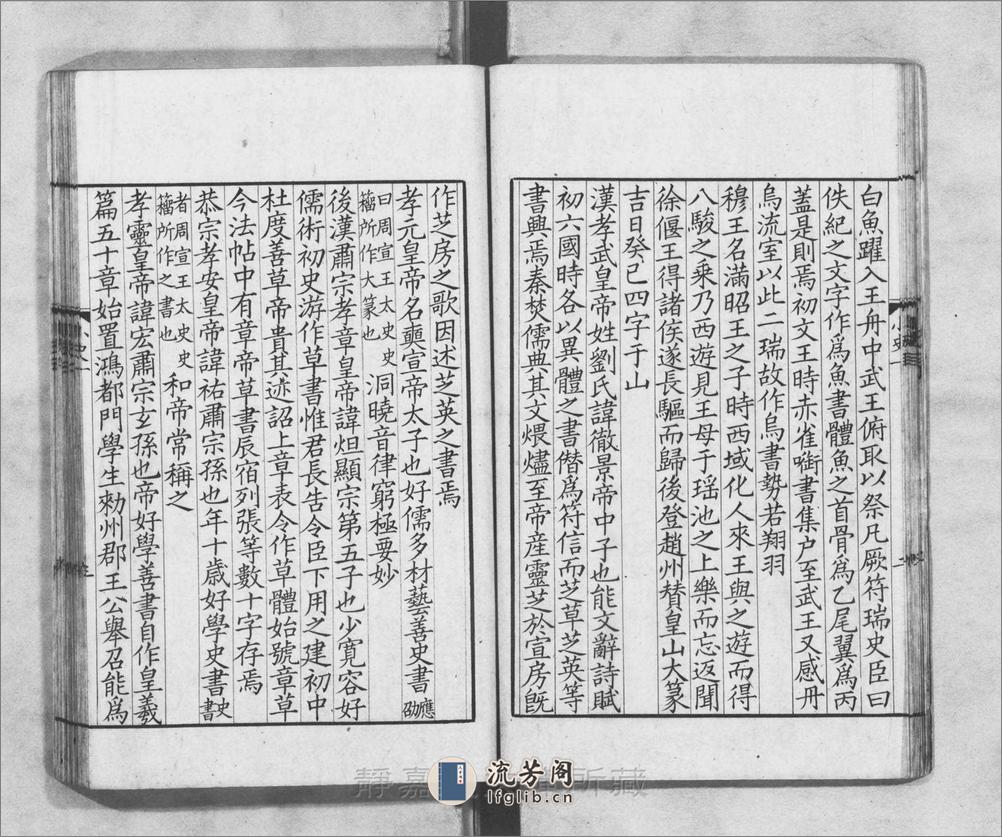 白魚躍入王舟中武王俯取以祭凡厥符瑞史臣曰
佚紀之文字作爲魚書體魚之首骨爲乙尾翼爲丙
蓋是則焉初文王時赤雀啣書集户至武王又感丹
烏流室以此二瑞故作烏書勢若翔羽
穆王名滿昭王之子時西域化人來王與之遊而得
八駿之乘乃西遊見王母于瑶池之上樂而忘返聞
徐偃王得諸侯遂長驅而歸後登趙州賛皇山大篆
吉日癸己四字于山
漢孝武皇帝姓劉氏諱徹景帝中子也能文辭詩賦
初六國時各以異體之書僭爲符信而芝草芝英等
書興焉秦焚儒典其文煨燼至帝産靈芝於宣房旣
小史一
作芝房之歌因述芝英之書焉
孝元皇帝名奭宣帝太子也好儒多材藝善史書應劭
曰周宣王太史史籀所作大篆也洞曉音律窮極要妙
後漢肅宗孝章皇帝諱炟顯宗第五子也少寛容好
儒術初史游作草書惟君長告令臣下用之建初中
杜度善草帝貴其迹詔上章表令作草體始號章草
今法帖中有章帝草書辰宿列張等數十字存焉
恭宗孝安皇帝諱祐肅宗孫也年十歳好學史書史書
者周宣王太史史籀所作之書也和帝常稱之
孝靈皇帝諱宏肅宗玄孫也帝好學善書自作皇羲
篇五十章始置鴻都門學生勑州郡王公舉召能爲
小史一
靜嘉堂文庫所藏
流芳阁
lfglib.cn